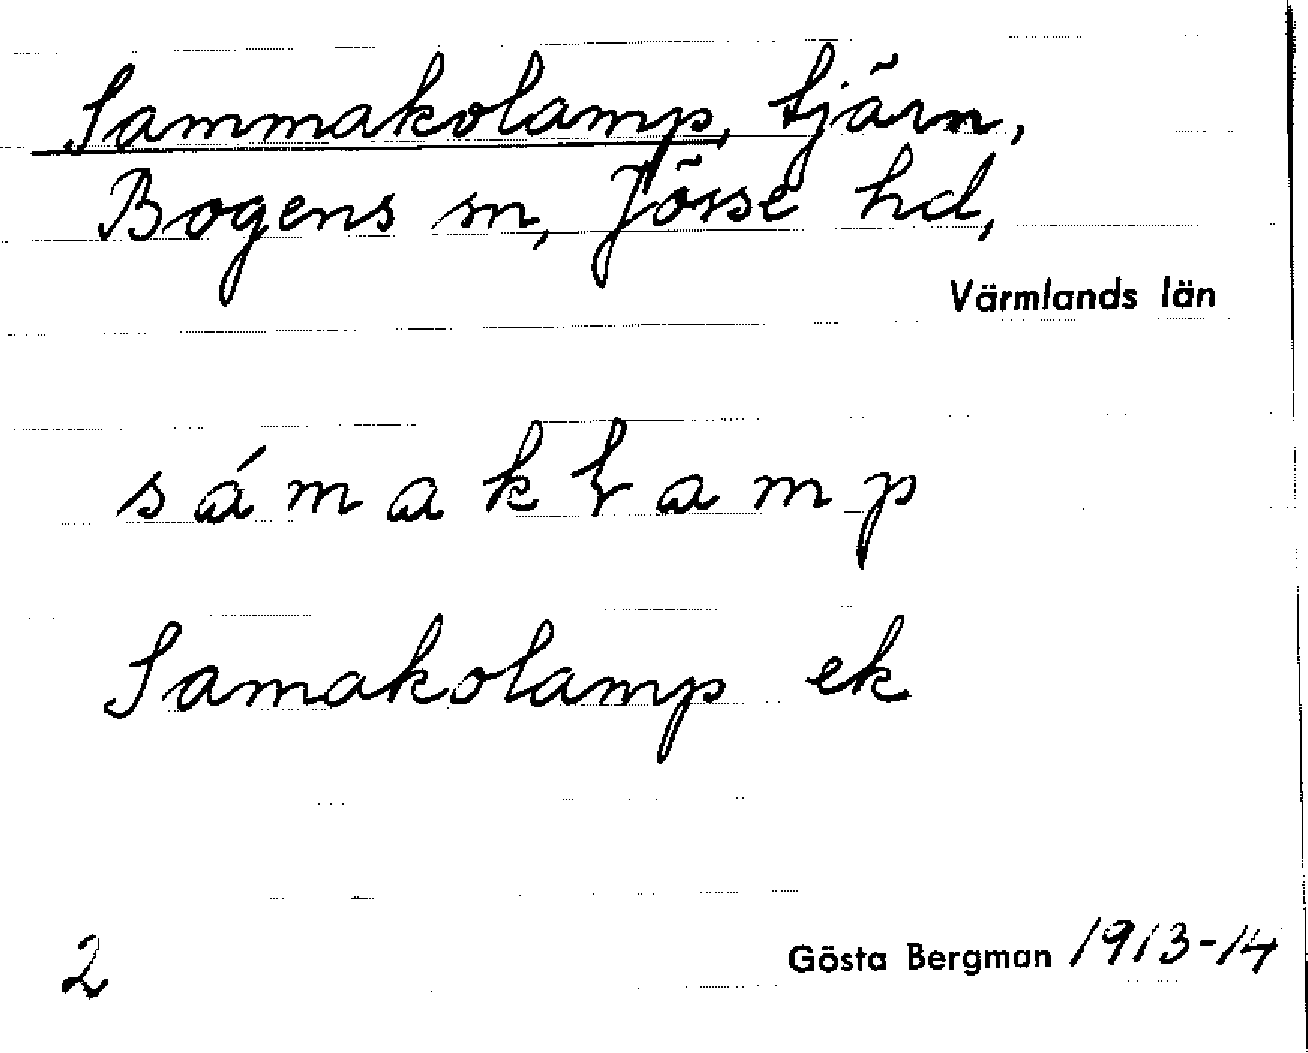 Sammakolamp, tjärn,
Bogens sn, Jösse hd,
Värmlands län
Samakolamp ek
2
Gösta Bergman 1913-14